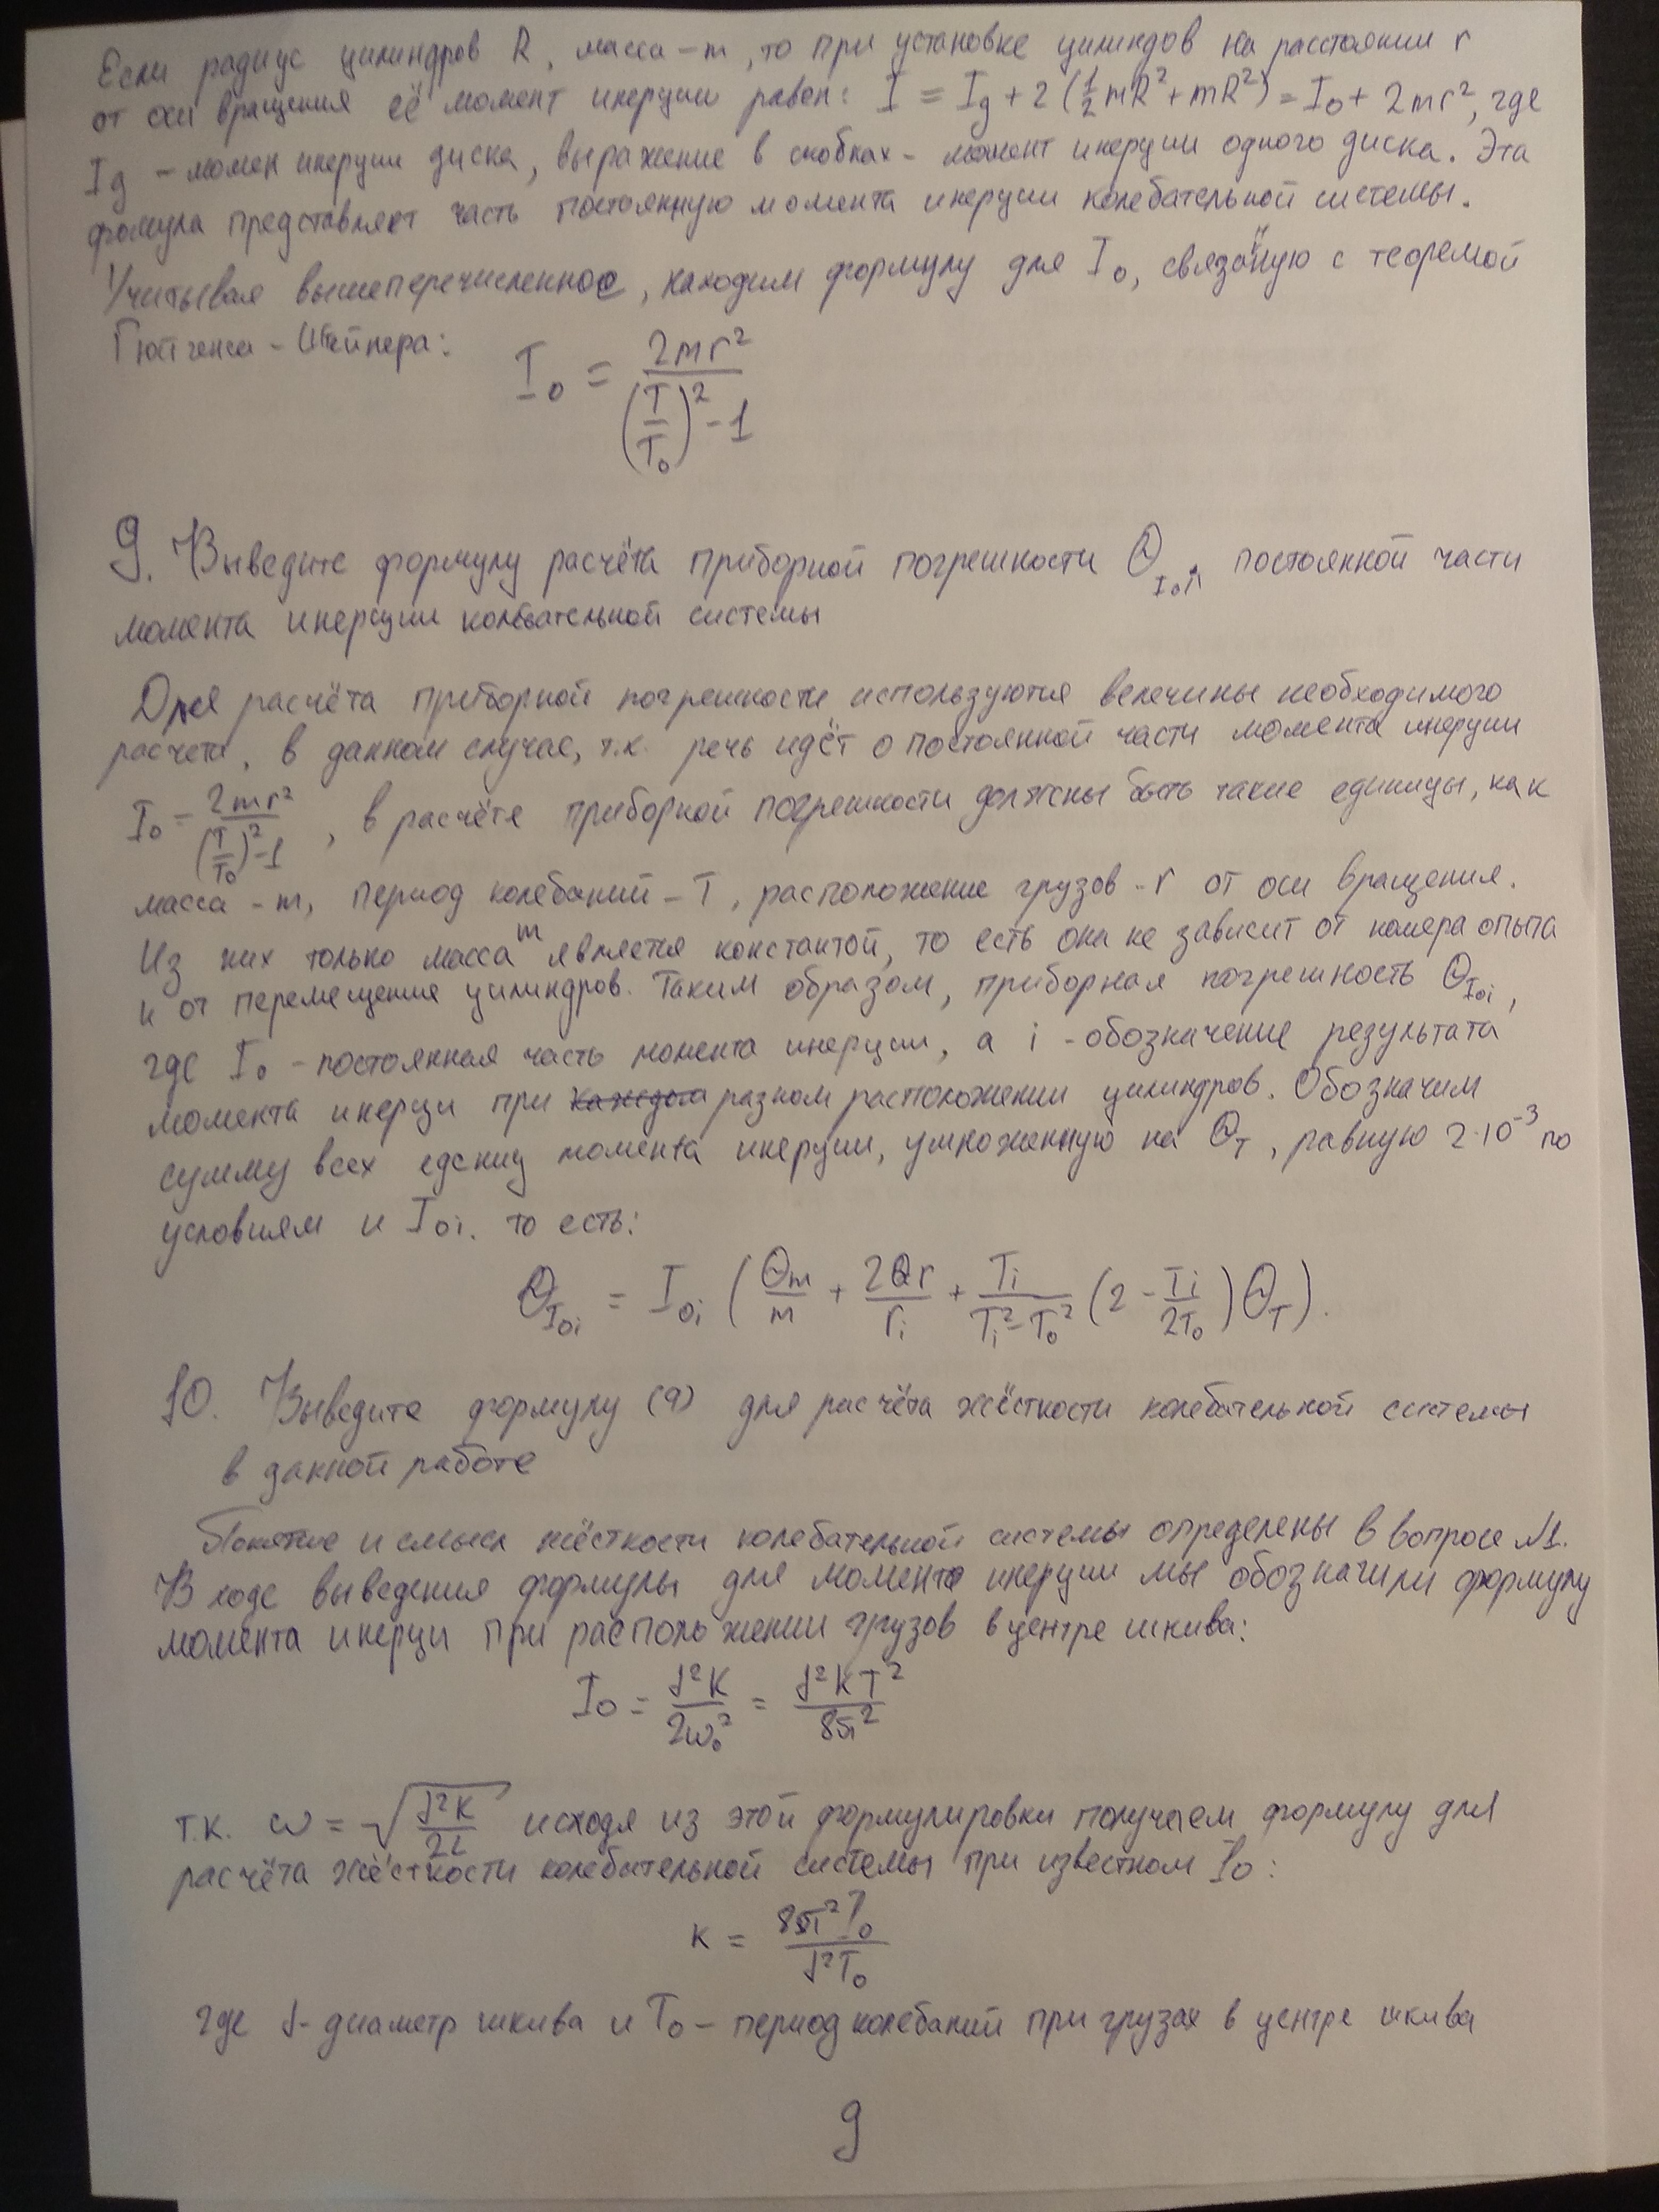 Если радиус цилиндров R, масса - m, то при установке цилиндов на расстоянии r
от оси вращения её момент инерции равен: I = I_д + 2 (1/2 mR² + mR²) = I₀ + 2mr², где
I_д - момен инерции диска, выражение в скобках - момент инерции одного диска. Эта
формула представляет часть постоянную момента инерции колебательной системы.
Учитывая вышеперечисленное, находим формулу для I₀, связаную с теоремой
Гюйгенса - Штейнера:
I₀ = 2mr² / ((T/T₀)² - 1)
9. Выведите формулу расчёта приборной погрешности Θ_I₀i постоянной части
момента инерции колебательной системы
Для расчёта приборной погрешности используются велечины необходимого
расчета, в данном случае, т.к. речь идёт о постоянной части момента инерции
I₀ = 2mr² / ((T/T₀)² - 1), в расчёте приборной погрешности должны быть такие единицы, как
масса - m, период колебаний - T, расположение грузов - r от оси вращения.
Из них только масса m является константой, то есть она не зависит от номера опыта
и от перемещения цилиндров. Таким образом, приборная погрешность Θ_I₀i,
где I₀ - постоянная часть момента инерции, а i - обозначение результата
момента инерци при разном расположении цилиндров. Обозначим
сумму всех едениц момента инерции, умноженную на Θ_T, равную 2·10⁻³ по
условиям и I₀i. то есть:
Θ_I₀i = I₀i (Θm/m + 2Θr/ri + Ti/(Ti² - T₀²) (2 - Ti/2T₀) Θ_T).
10. Выведите формулу (9) для расчёта жёсткости колебательной системы
в данной работе
Понятие и смысл жёсткости колебательной системы определены в вопросе №1.
В ходе выведения формулы для момента инерции мы обозначили формулу
момента инерци при расположении грузов в центре шкива:
I₀ = d²K / 2ω₀² = d²KT² / 8π²
т.к. ω = √(d²K / 2I) исходя из этой формулировки получаем формулу для
расчёта жёсткости колебательной системы при известном I₀:
K = 8π²I₀ / d²T₀
где d - диаметр шкива и T₀ - период колебаний при грузах в центре шкива
9